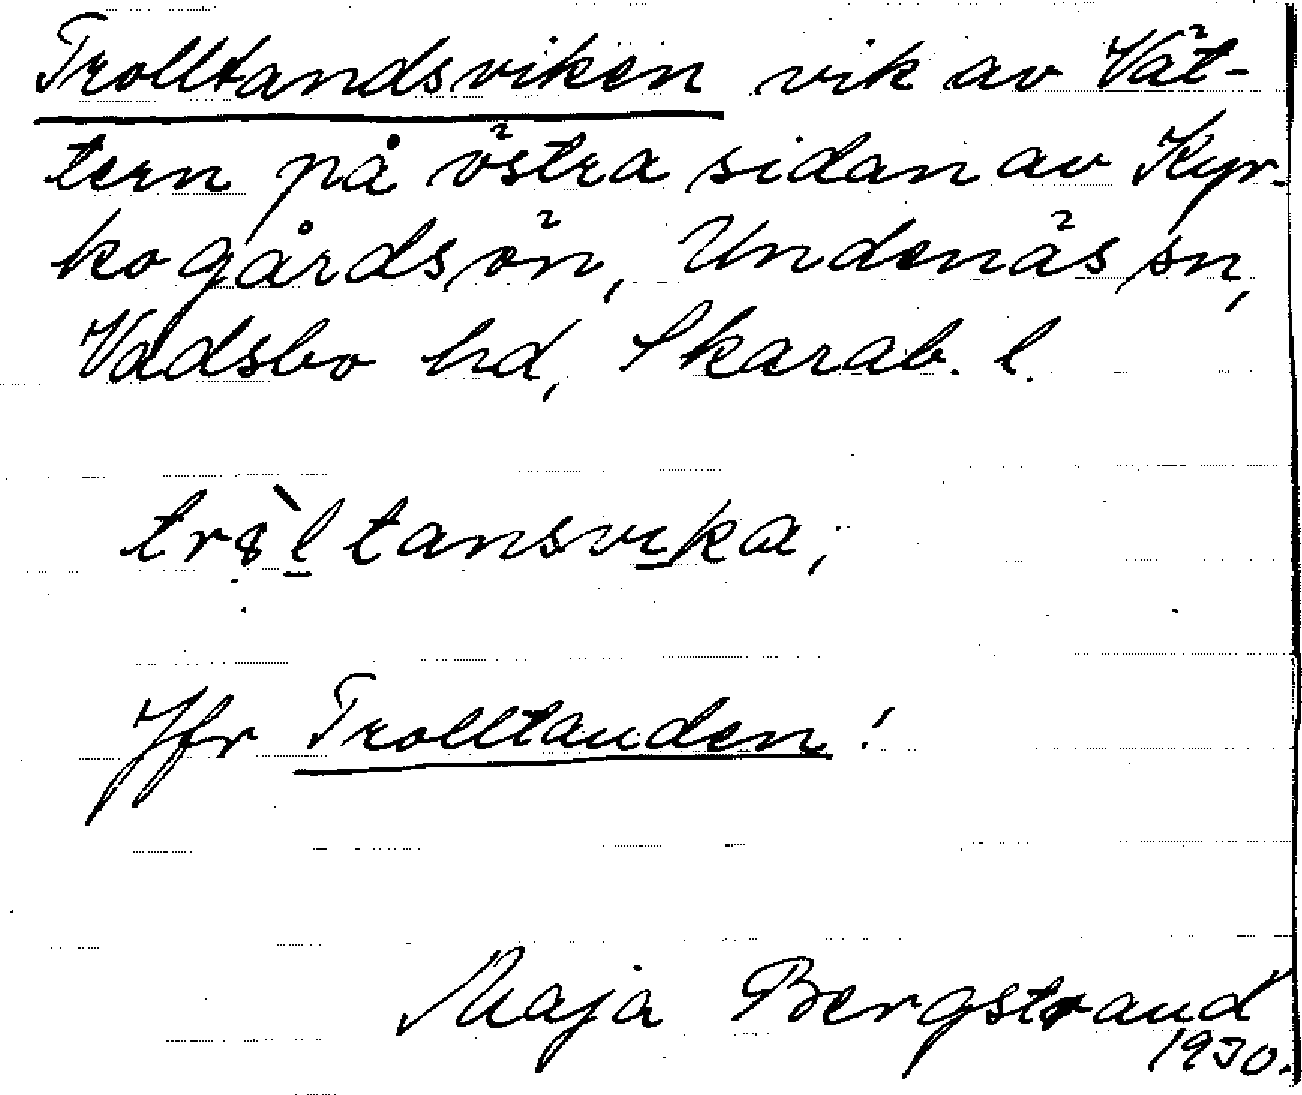 Trolltandsviken vik av Vät-
tern på östra sidan av Kyr-
kogårdsön, Undenäs sn,
Vadsbo hd, Skarab. l.
tansvika,
Jfr Trolltanden!
Maja Bergstrand
1930.